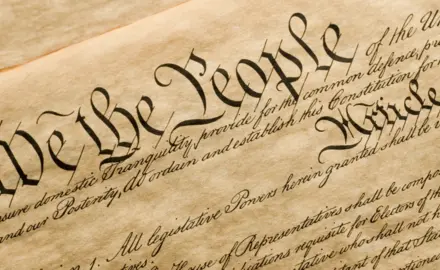 We the People of the U
insure domestic Tranquility, provide for the common defence, pr
and our Posterity, do ordain and establish this Constitution for
Article
1. All legislative Powers herein granted shall be
House of Representatives shall be compo
requisite for Electors of the
who shall not
of that Sta